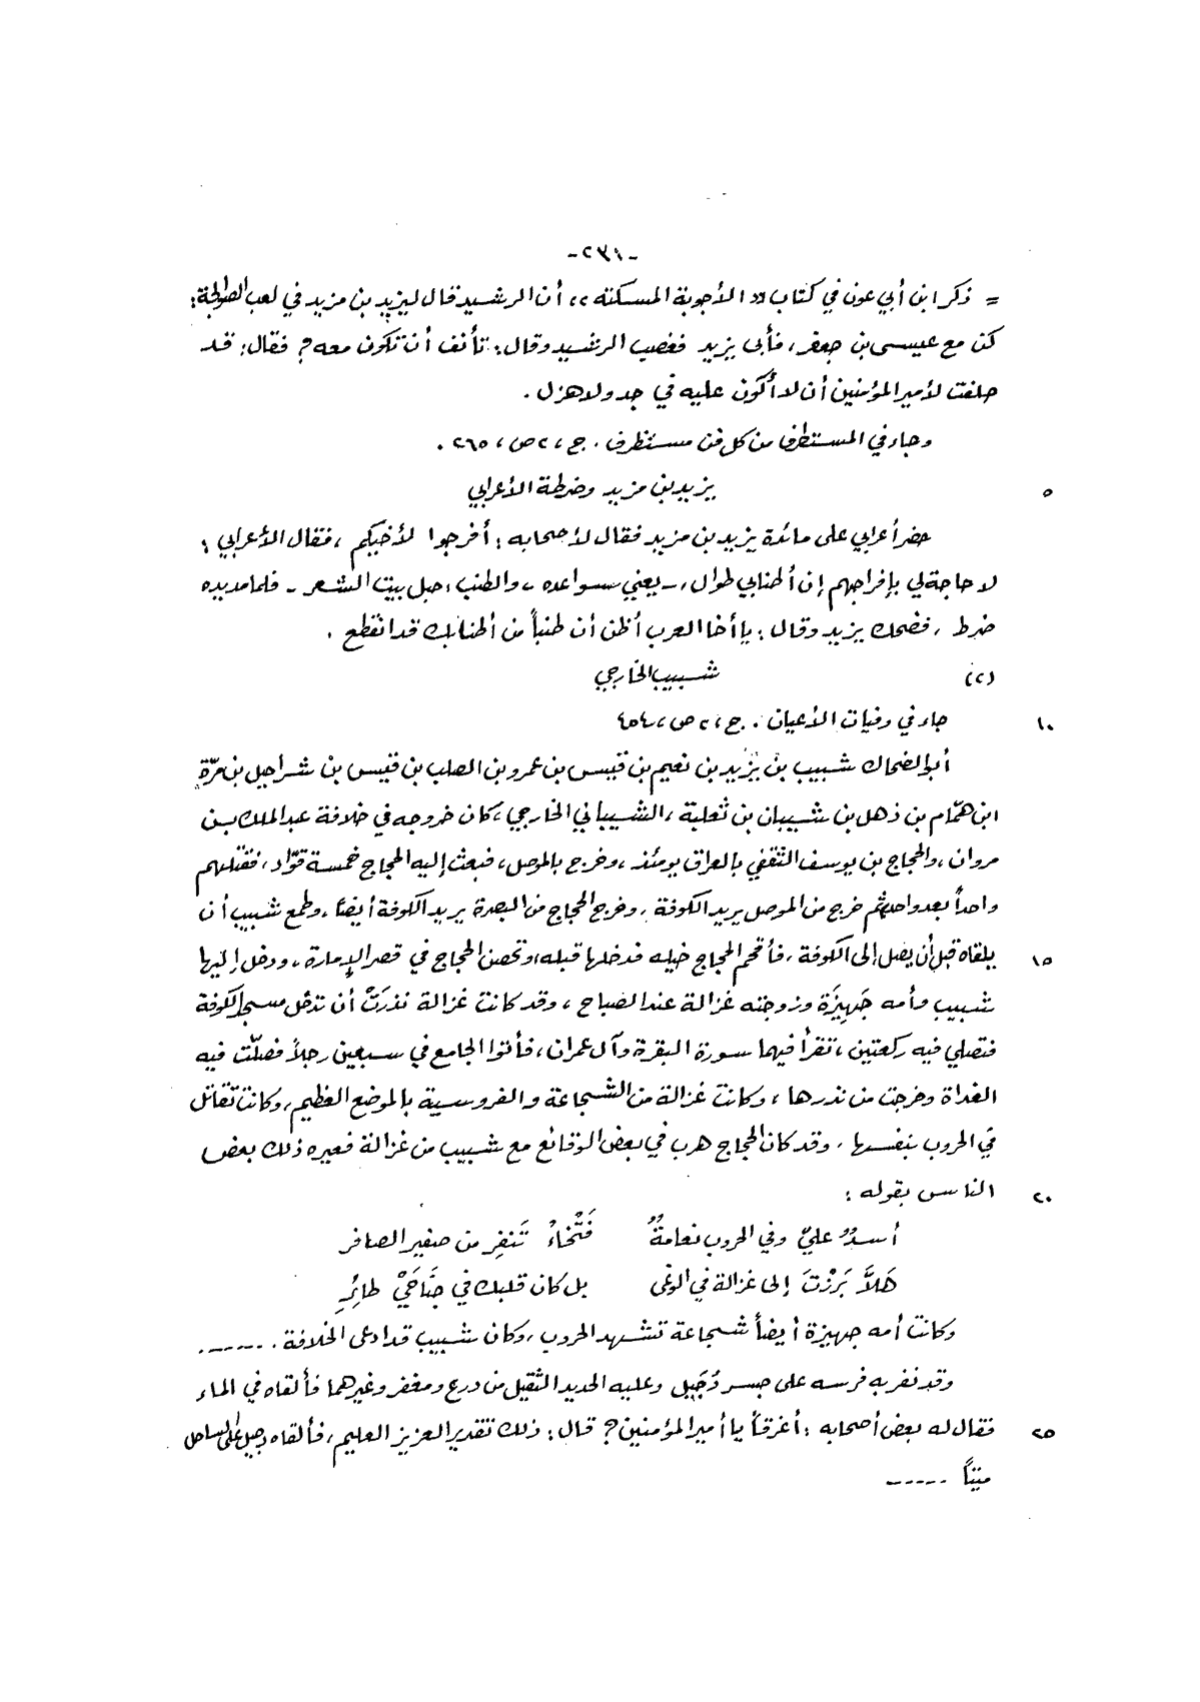 -٢٣١-
= ذكر ابن أبي عون في كتاب «الأجوبة المسكتة» أن الرشيد قال ليزيد بن مزيد في لعب الصوالجة:
كن مع عيسى بن جعفر، فأبى يزيد فغضب الرشيد وقال: تأنف أن تكون معه؟ فقال: قد
حلفت لأمير المؤمنين أن لا أكون عليه في جد ولا هزل.
وجاء في المستطرف من كل فن مستظرف. ج،٢ ص، ٢٦٥.
٥ يزيد بن مزيد وضرطة الأعرابي
حضر أعرابي على مائدة يزيد بن مزيد فقال لأصحابه: أفرجوا لأخيكم، فقال الأعرابي:
لا حاجة لي بإفراجهم إن أطنابي طوال، - يعني سواعده - والطنب، حبل بيت الشعر - فلما مد يده
ضرط، فضحك يزيد وقال: يا أخا العرب أظن أن طنباً من أطنابك قد انقطع.
(٢) شبيب الخارجي
١٠ جاء في وفيات الأعيان. ج،٢ ص، ٤٥٤
أبو الضحاك شبيب بن يزيد بن نعيم بن قيس بن عمرو بن الصلب بن قيس بن شراحيل بن مرّة
ابن همّام بن ذهل بن شيبان بن ثعلبة، الشيباني الخارجي، كان خروجه في خلافة عبد الملك بن
مروان، والحجاج بن يوسف الثقفي بالعراق يومئذ، وخرج بالموصل، فبعث إليه الحجاج خمسة قوّاد، فقتلهم
واحداً بعد واحد، ثم خرج من الموصل يريد الكوفة، وخرج الحجاج من البصرة يريد الكوفة أيضاً، وطمع شبيب أن
١٥ يلقاه قبل أن يصل إلى الكوفة، فأقحم الحجاج خيله فدخلها قبله، وتحصن الحجاج في قصر الإمارة، ودخل إليها
شبيب وأمه جَهِيزَة وزوجته غزالة عند الصباح، وقد كانت غزالة نذرَتْ أن تدخل مسجد الكوفة
فتصلي فيه ركعتين، تقرأ فيهما سورة البقرة وآل عمران، فأتوا الجامع في سبعين رجلاً فصلّت فيه
الغداة وخرجت من نذرها، وكانت غزالة من الشجاعة والفروسية بالموضع العظيم، وكانت تقاتل
في الحروب بنفسها، وقد كان الحجاج هرب في بعض الوقائع مع شبيب من غزالة فعيره ذلك بعض
٢٠ الناس بقوله:
أسدٌ عليّ وفي الحروب نعامةٌ فَتْخاءُ تَنفِر من صفير الصافر
هَلاَّ بَرَزْتَ إلى غزالة في الوغى بل كان قلبك في جَنَاحَيْ طائِرِ
وكانت أمه جهيزة أيضاً شجاعة تشهد الحروب، وكان شبيب قد ادعى الخلافة. ------.
وقد نفر به فرسه على جسر دُجَيل وعليه الحديد الثقيل من درع ومغفر وغيرهما فألقاه في الماء
٢٥ فقال له بعض أصحابه: أغرقاً يا أمير المؤمنين؟ قال: ذلك تقدير العزيز العليم، فألقاه دجيل على الساحل
ميتاً -----